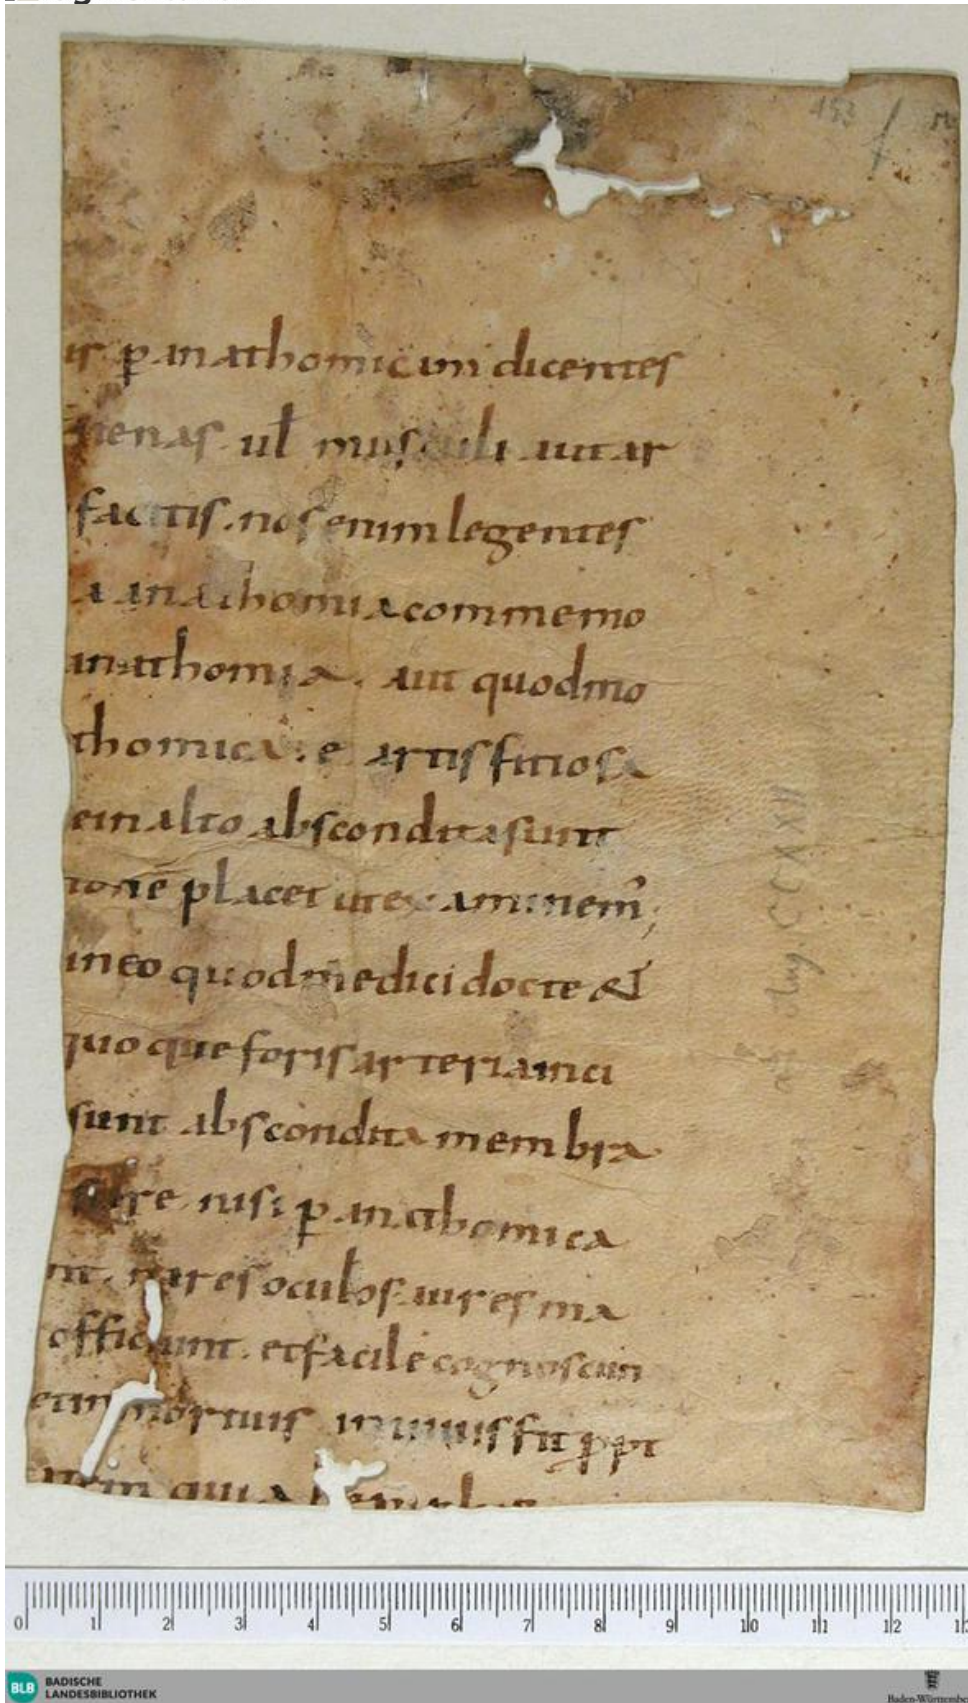 is p anathomicam dicentes
uenas ul musculi aut ar
facitis. nos enim legentes
a anathomia commemo
anathomia. aut quodmo
thomica. e artis fitiosa
ein alto abscondita sunt
ione placet ut examinem;
in eo quod medici docte &
quoque foris arteria inci
sunt abscondita membra
re nisi p anathomica
nt. nares oculos aures ma
officiunt. et facile cognoscun
etin mortuis in uiuis fit ppt
quia
193
0 1 2 3 4 5 6 7 8 9 10 11 12 13
BLB BADISCHE
LANDESBIBLIOTHEK